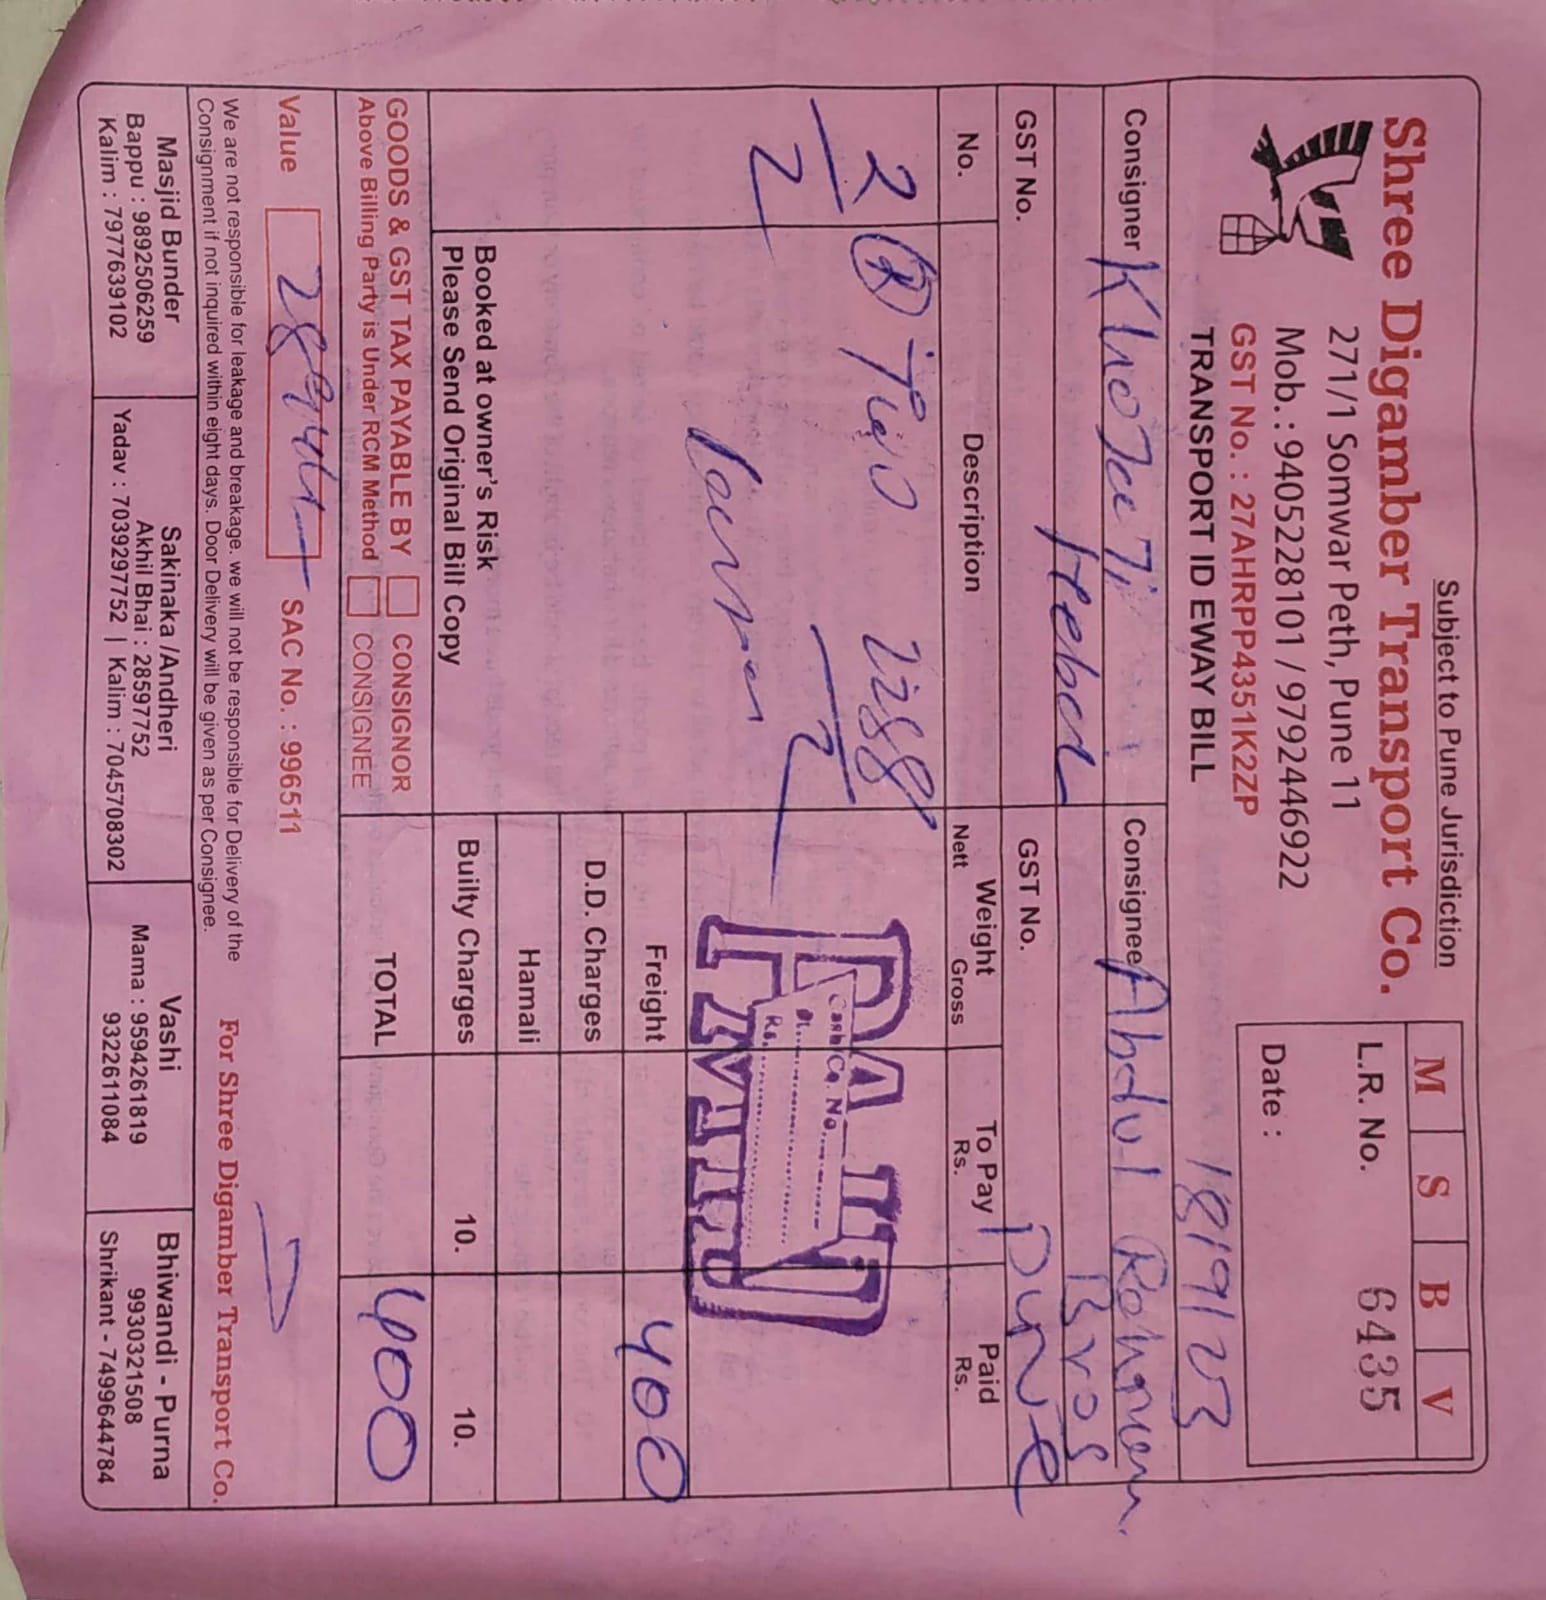 Subject to Pune Jurisdiction
Shree Digamber Transport Co.
271/1 Somwar Peth, Pune 11
Mob. : 9405228101 / 9792446922
GST No. : 27AHRPP4351K2ZP
TRANSPORT ID EWAY BILL
M S B V
L.R. No. 6435
Date :
18/9/23
Consigner
Consignee Abdul Rehman
Bros
GST No.
GST No.
Pune
No. Description Weight To Pay Paid
Nett Gross Rs. Rs.
2
PAID
Cash Ca. No.
Dt.
Rs.
2
Freight 400
D.D. Charges
Hamali
Booked at owner's Risk
Please Send Original Bill Copy
Builty Charges 10. 10.
GOODS & GST TAX PAYABLE BY CONSIGNOR
Above Billing Party is Under RCM Method CONSIGNEE
TOTAL 400
Value SAC No. : 996511
We are not responsible for leakage and breakage. we will not be responsible for Delivery of the
Consignment if not inquired within eight days. Door Delivery will be given as per Consignee.
For Shree Digamber Transport Co.
Masjid Bunder
Bappu : 9892506259
Kalim : 7977639102
Sakinaka /Andheri
Akhil Bhai : 28597752
Yadav : 7039297752 | Kalim : 7045708302
Vashi
Mama : 9594261819
9322611084
Bhiwandi - Purna
9930321508
Shrikant - 7499644784